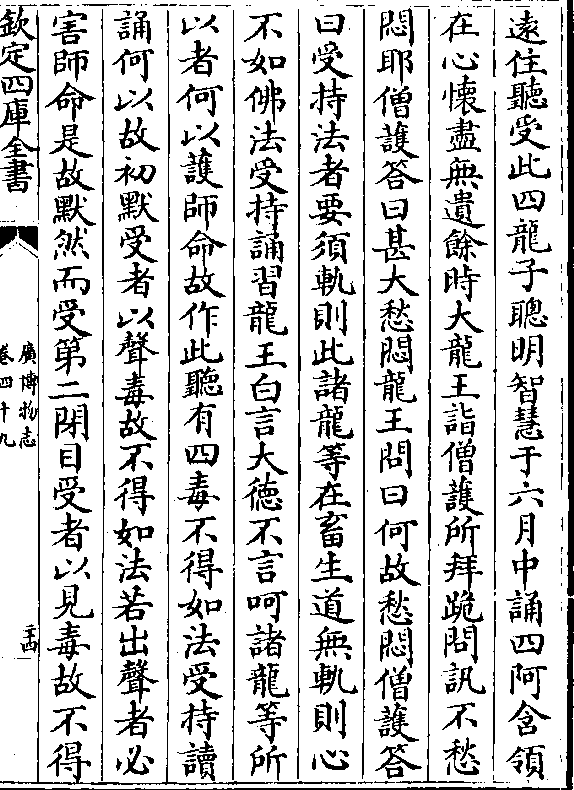 逺住聽受此四龍子聰明智慧于六月中誦四阿含領
在心懷盡無遺餘時大龍王詣僧護所拜跪問訊不愁
悶耶僧護答曰甚大愁悶龍王問曰何故愁悶僧護答
曰受持法者要須軌則此諸龍等在畜生道無軌則心
不如佛法受持誦習龍王白言大徳不言呵諸龍等所
以者何以護師命故作此聽有四毒不得如法受持讀
誦何以故初默受者以聲毒故不得如法若出聲者必
害師命是故默然而受第二閉目受者以見毒故不得
欽定四庫全書
廣博物志
卷四十九
二十四